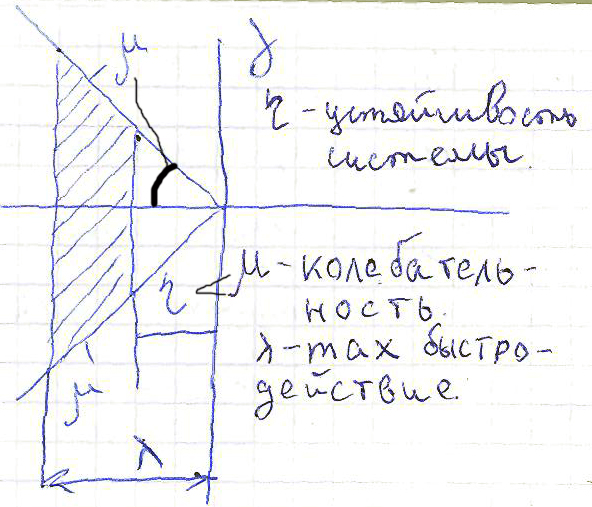 μ
j
η - устойчивость
системы.
η
μ - колебатель-
ность.
λ - max быстро-
действие.
μ
λ